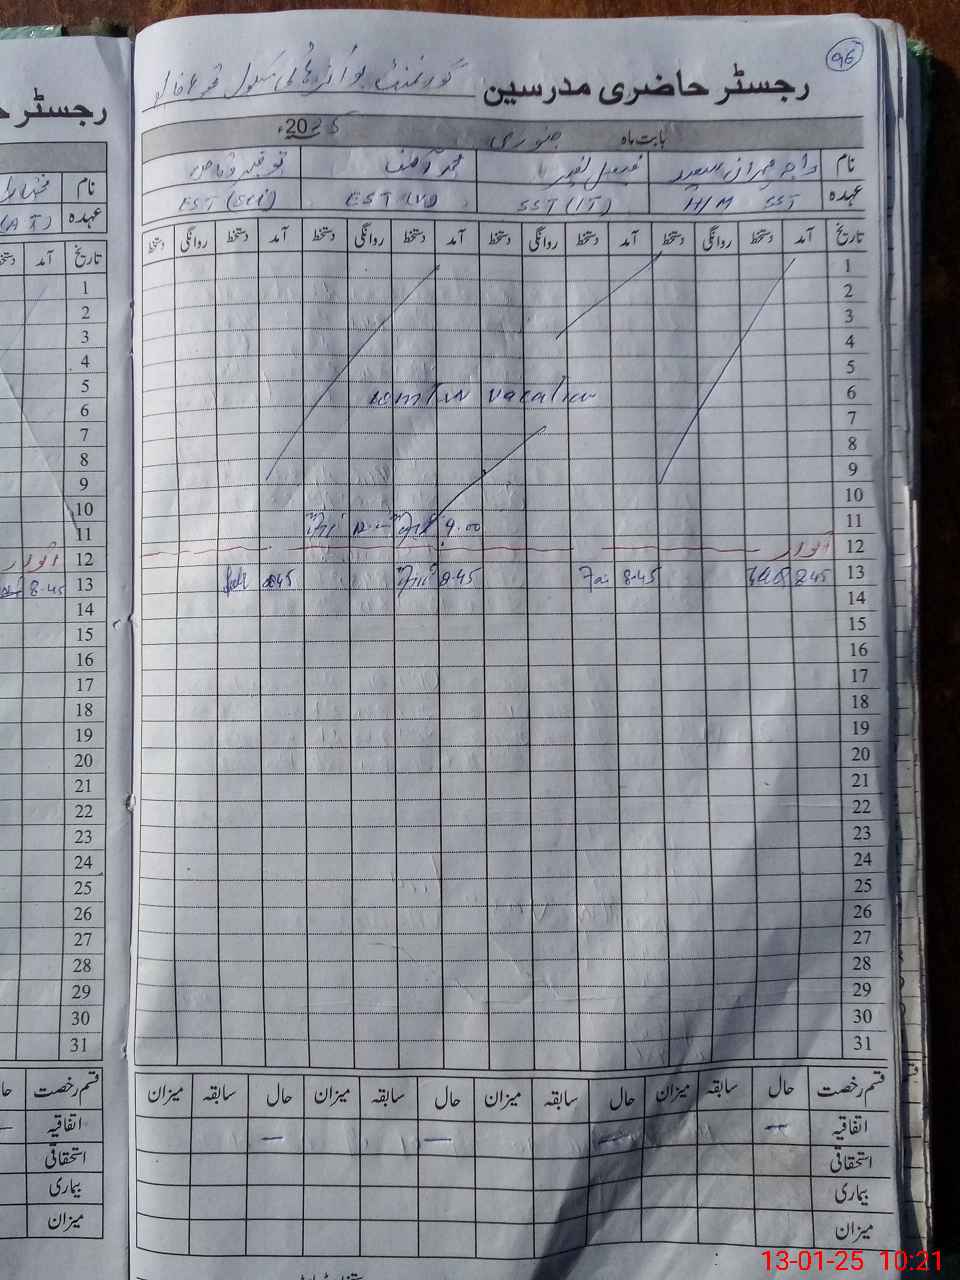 96
رجسٹر حاضری مدرسین گورنمنٹ بوائز ہائی سکول
بابت ماہ جنوری 2025ء
نام راجہ عمران سعید فیصل نصیر محمد آصف
عہدہ H/M SST SST (IT) EST (V) EST (Sci)
تاریخ آمد دستخط روانگی دستخط آمد دستخط روانگی دستخط آمد دستخط روانگی دستخط آمد دستخط روانگی دستخط
1
2
3
4
5
6 winter vacation
7
8
9
10
11 9.00
12 اتوار
13 8.45 8.45 8.45 8.45
14
15
16
17
18
19
20
21
22
23
24
25
26
27
28
29
30
31
قسم رخصت حال سابقہ میزان حال سابقہ میزان حال سابقہ میزان حال سابقہ میزان
اتفاقیہ — — — —
استحقاقی
بیماری
میزان
رجسٹر
نام
عہدہ (AT)
تاریخ آمد
1
2
3
4
5
6
7
8
9
10
11
12 اتوار
13 8.45
14
15
16
17
18
19
20
21
22
23
24
25
26
27
28
29
30
31
قسم رخصت
اتفاقیہ —
استحقاقی
بیماری
میزان
13-01-25 10:21